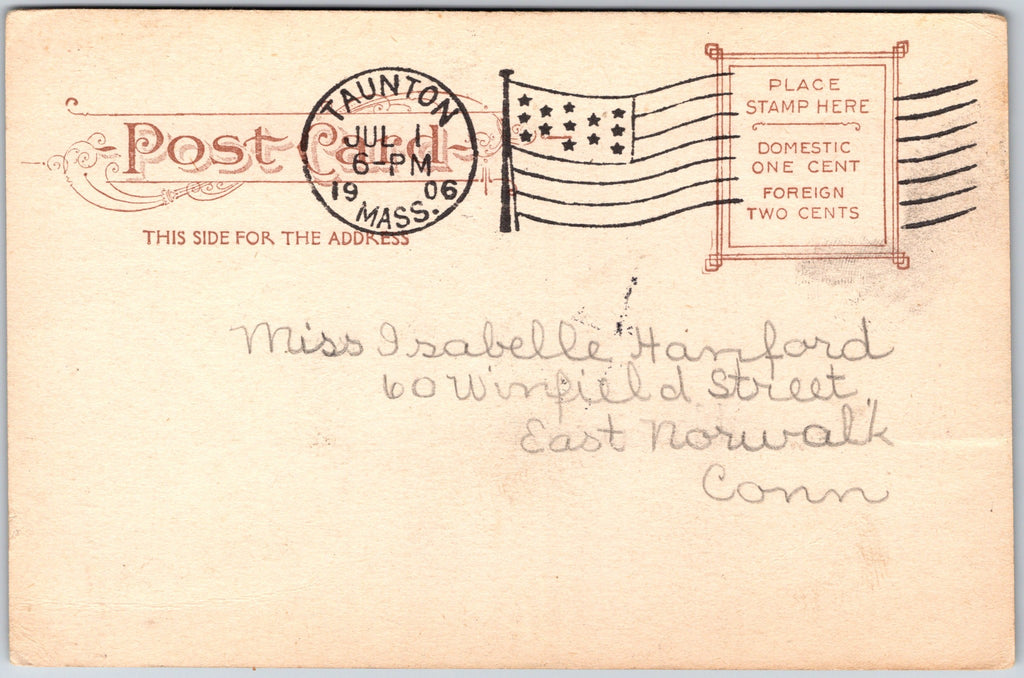 Post Card
THIS SIDE FOR THE ADDRESS
TAUNTON
JUL 1
6-PM
19 06
MASS.
PLACE
STAMP HERE
DOMESTIC
ONE CENT
FOREIGN
TWO CENTS
Miss Isabelle Hanford
60 Winfield Street,
East Norwalk
Conn